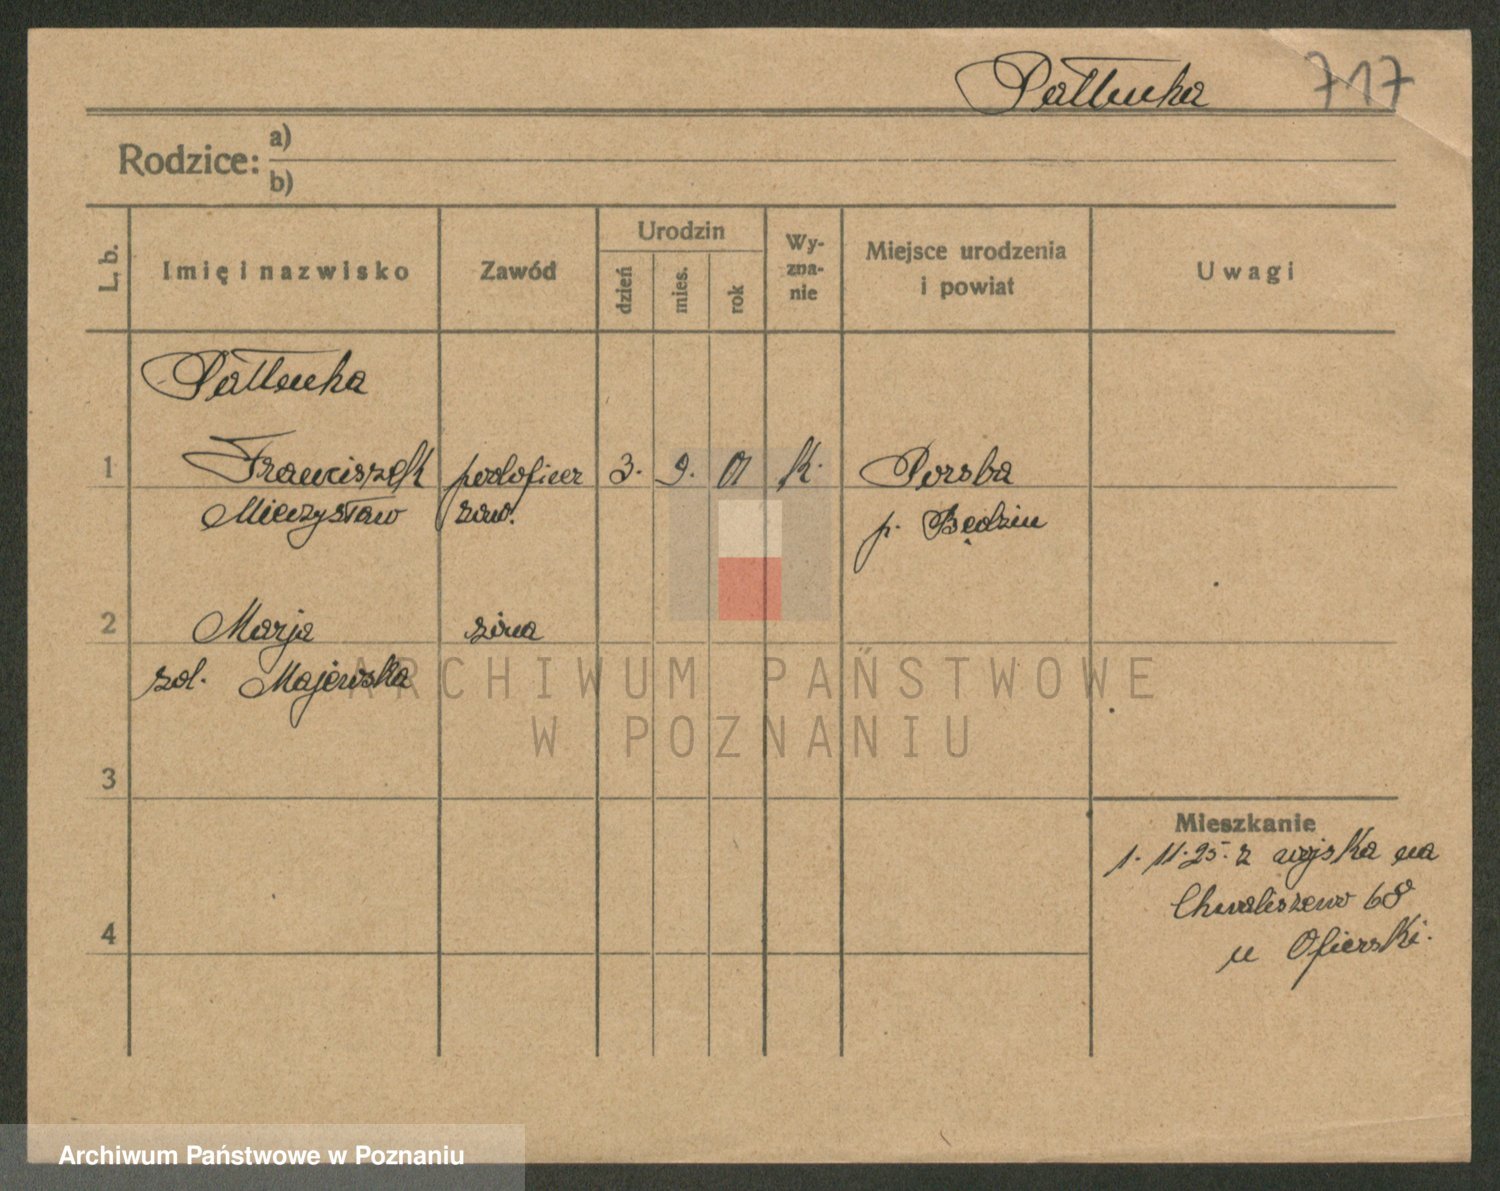 Pałłucka 717
Rodzice: a)
b)
L. b. Imię i nazwisko Zawód Urodzin dzień mies. rok Wy-zna-nie Miejsce urodzenia i powiat Uwagi
Pałłucka
1 Franciszek podoficer 3. 9. 01 k.
Mieczysław zaw. p. Będzin
2 Marja żona
zol. Majewska
3
4
Mieszkanie
1. 11. 25. z wojska na
Chwaliszewo 68
u Ofierski.
ARCHIWUM PAŃSTWOWE
W POZNANIU
Archiwum Państwowe w Poznaniu